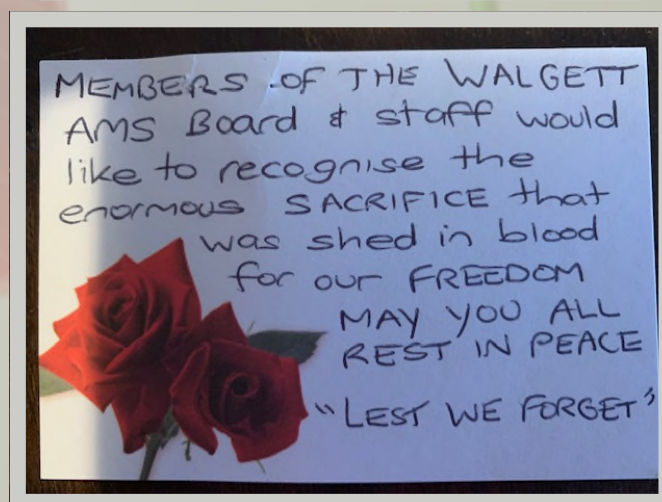 MEMBERS OF THE WALGETT
AMS Board & staff would
like to recognise the
enormous SACRIFICE that
was shed in blood
for our FREEDOM
MAY YOU ALL
REST IN PEACE
"LEST WE FORGET"